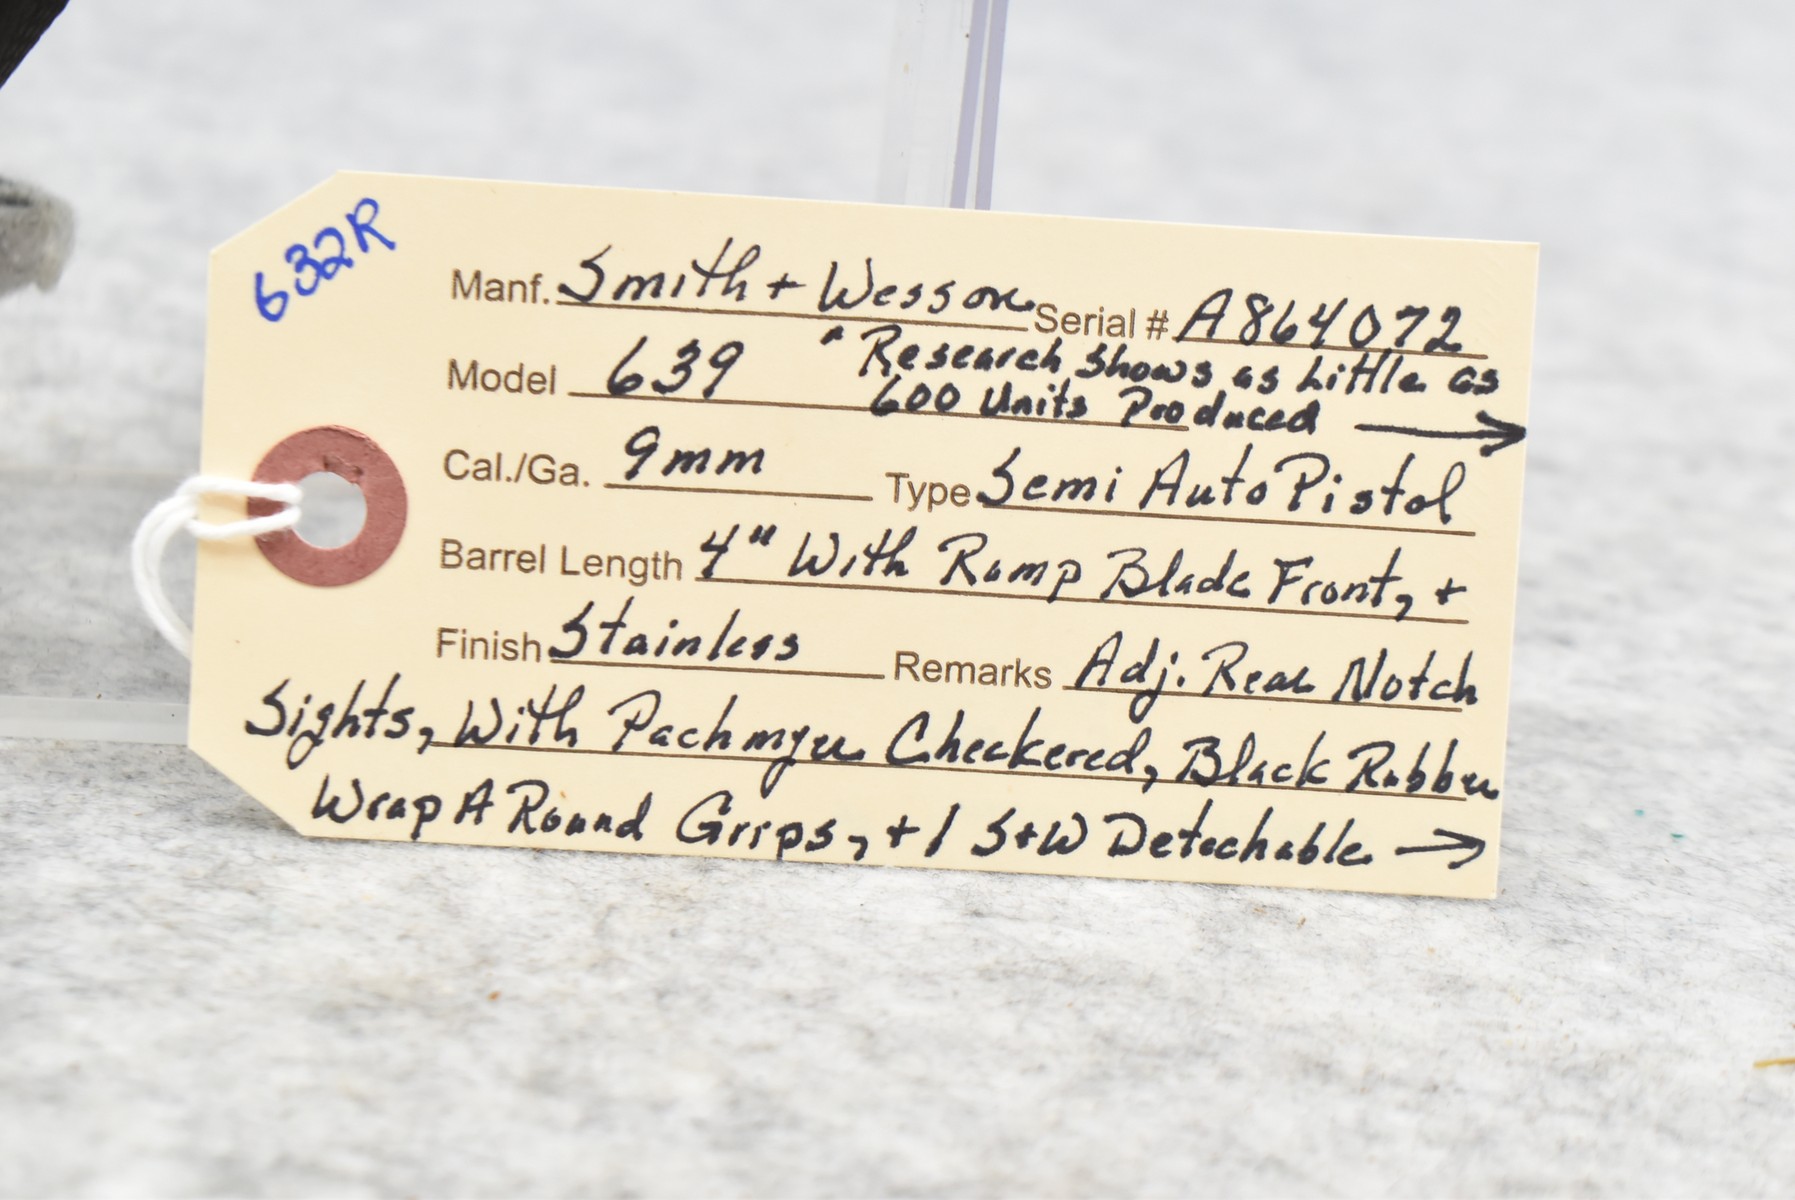 632R
Manf. Smith + Wesson Serial # A864072
Model 639 " Research Shows as Little as
600 Units Produced →
Cal./Ga. 9mm Type Semi Auto Pistol
Barrel Length 4" With Ramp Blade Front, +
Finish Stainless Remarks Adj. Rear Notch
Sights, With Pachmyer Checkered, Black Rubber
Wrap A Round Grips, + 1 S+W Detachable →